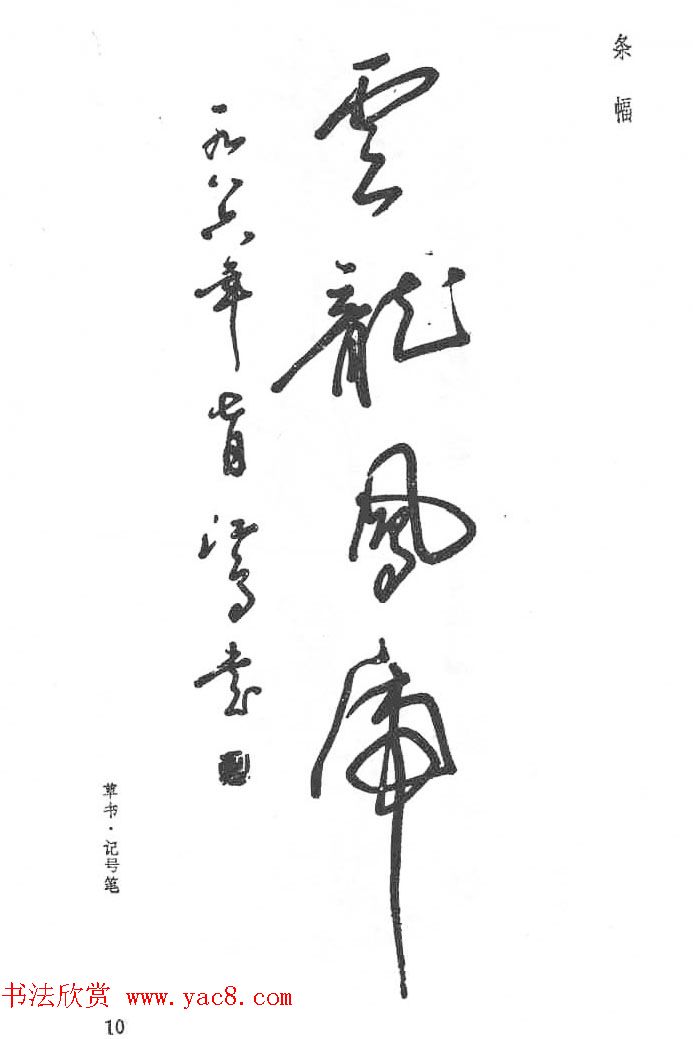 条幅
雲龍鳳虎
一九八六年七月鴻書
草书·记号笔
书法欣赏 www.yac8.com
10